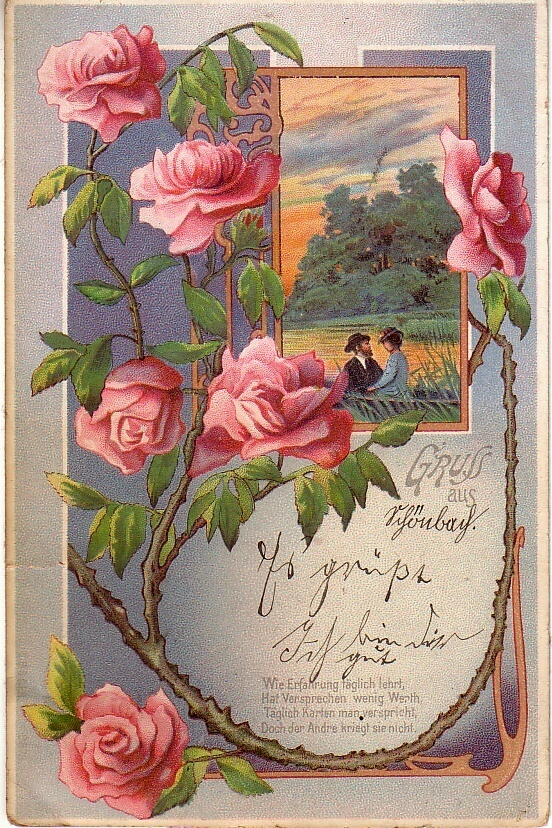 Gruss
aus
Schönbach.
Es grüßt
Ich bin dir
gut
Wie Erfahrung täglich lehrt,
Hat Versprechen wenig Werth,
Täglich Karten man verspricht,
Doch der Andre kriegt sie nicht.